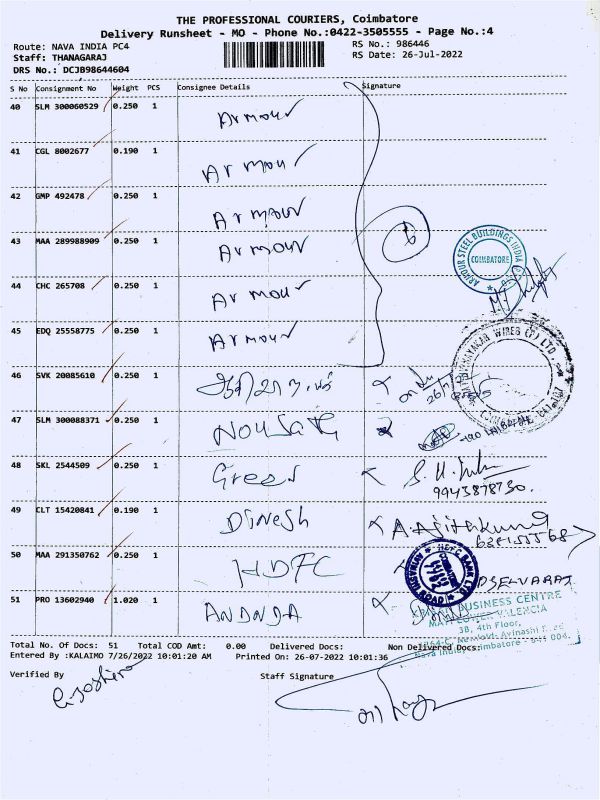 THE PROFESSIONAL COURIERS, Coimbatore
Delivery Runsheet - MO - Phone No.:0422-3505555 - Page No.:4
Route: NAVA INDIA PC4 RS No.: 986446
Staff: THANAGARAJ RS Date: 26-Jul-2022
DRS No.: DCJB98644604
S No Consignment No Weight PCS Consignee Details Signature
40 SLM 300060529 0.250 1 Armour
41 CGL 8002677 0.190 1 Armour
42 GMP 492478 0.250 1 Armour
43 MAA 289988909 0.250 1 Armour
ARMOUR STEEL BUILDINGS INDIA
COIMBATORE
44 CHC 265708 0.250 1 Armour
45 EDQ 25558775 0.250 1 Armour
46 SVK 20085610 0.250 1
47 SLM 300088371 0.250 1
48 SKL 2544509 0.250 1 Green
9943878730.
49 CLT 15420841 0.190 1 Dinesh A. Ajithkumar
50 MAA 291350762 0.250 1 HDFC
HDFC BANK LTD
DSELVARAJ
51 PRO 13602940 1.020 1 ANDNDA
BUSINESS CENTRE
MAYFLOWER VALENCIA
3B, 4th Floor,
Avinashi
Nava India, Coimbatore - 641 004.
Total No. Of Docs: 51 Total COD Amt: 0.00 Delivered Docs: Non Delivered Docs:
Entered By :KALAIMO 7/26/2022 10:01:20 AM Printed On: 26-07-2022 10:01:36
Verified By Staff Signature